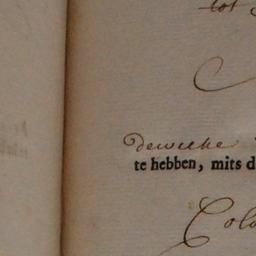 tot
Dewelke
te hebben, mits d
Colo